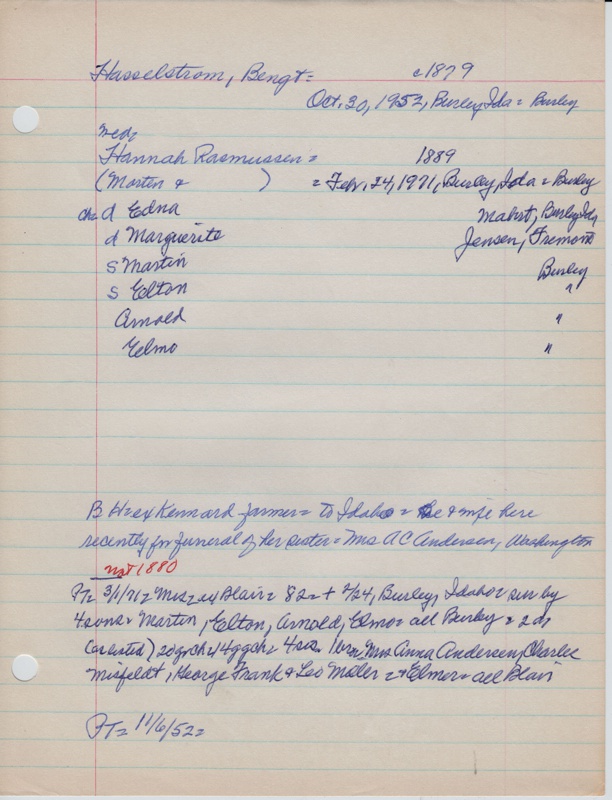 Hasselstrom, Bengt = c1879
Oct. 30, 1952, Burley, Ida = Burley
med:
Hannah Rasmussen = 1889
(Morten & ) = Feb. 24, 1971, Burley, Ida = Burley
chr d Edna Mahrt, Burley Ida
d Marguerite Jensen, Fremont
S Martin Burley
S Elton "
Arnold "
Elmo "
B H = ex Kennard farmer = to Idaho = He & wife here
recently for funeral of her sister = Mrs A C Andersen, Washington
not 1880
PT= 3/1/71 = Mrs = ex Blair = 82 = + 2/24, Burley, Idaho = sur by
4 sons = Martin, Elton, Arnold, Elmo = all Burley = 2 ds
(as listed) 20 grch = 14 ggch = 4 sis. 1 br = Mrs Anna Andersen, Charles
Misfeldt, George Frank & Leo Moller = & Elmer = all Blair
PT= 11/6/52 =